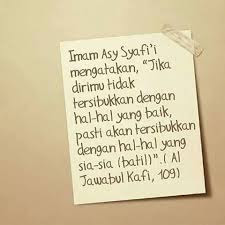 Imam Asy Syafi'i
mengatakan, "Jika
dirimu tidak
tersibukkan dengan
hal-hal yang baik,
pasti akan tersibukkan
dengan hal-hal yang
sia-sia (batil)". ( Al
Jawabul Kafi, 109)